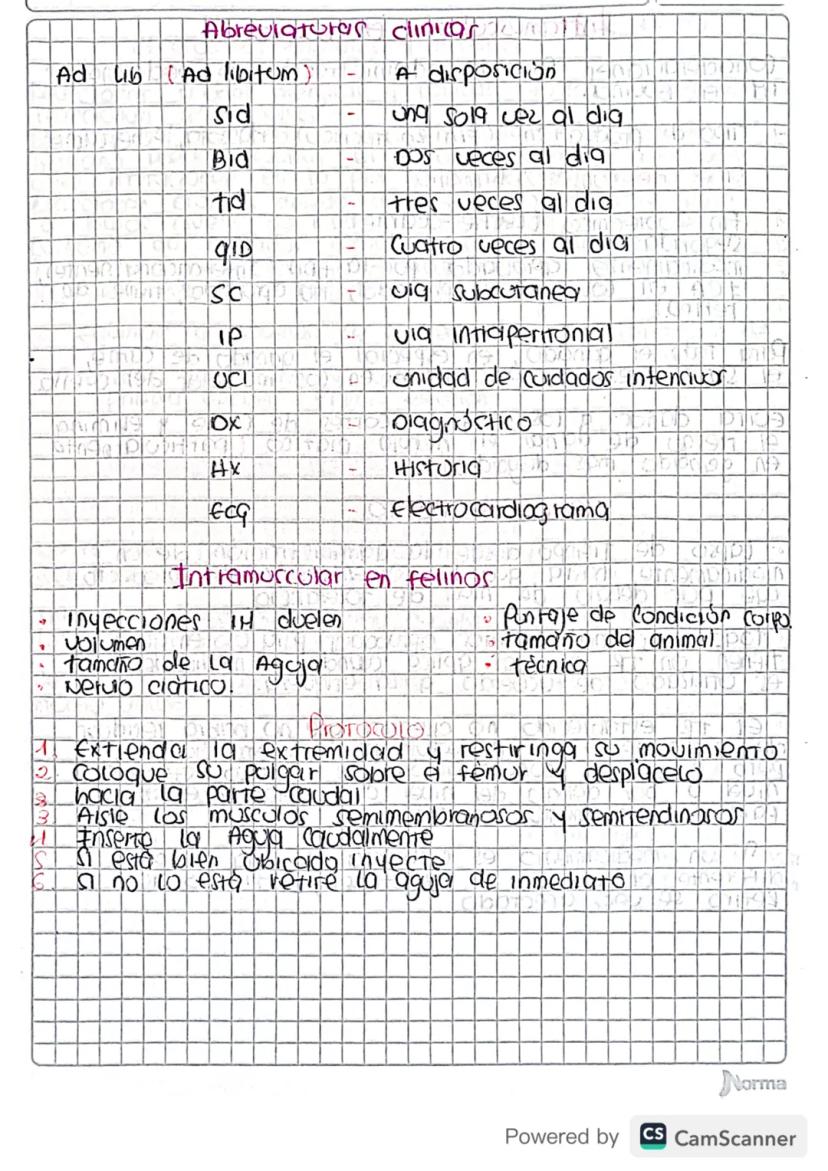 Abreviaturas clinicas
Ad lib (Ad libitum) - A disposición
Sid - una sola vez al dia
Bid - Dos veces al dia
tid - tres veces al dia
qID - Cuatro veces al dia
SC - via subcutanea
IP - via intraperitonial
UCI - unidad de cuidados intencivos
DX - Diagnóstico
HX - Historia
ECG - Electrocardiograma
Intramuscular en felinos
• Inyecciones IM duelen
• Volumen
• tamaño de la Aguja
• Nervio ciatico.
• Puntaje de Condición corpo.
• tamaño del animal
• técnica
Protocolo
1. Extienda la extremidad y restiringa su movimiento
2. Coloque su pulgar sobre el fémur y desplacelo
3 hacia la parte caudal
3 Aisle los musculos semimembranosos y semitendinosos
4 Inserte la Aguja caudalmente
5 Si está bien Ubicada inyecte
6. Si no lo está retire la aguja de inmediato
Norma
Powered by CS CamScanner